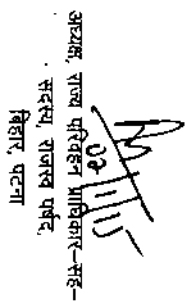 अध्यक्ष, राज्य परिवहन प्राधिकार–सह–
सदस्य, राजस्व पर्षद,
बिहार, पटना